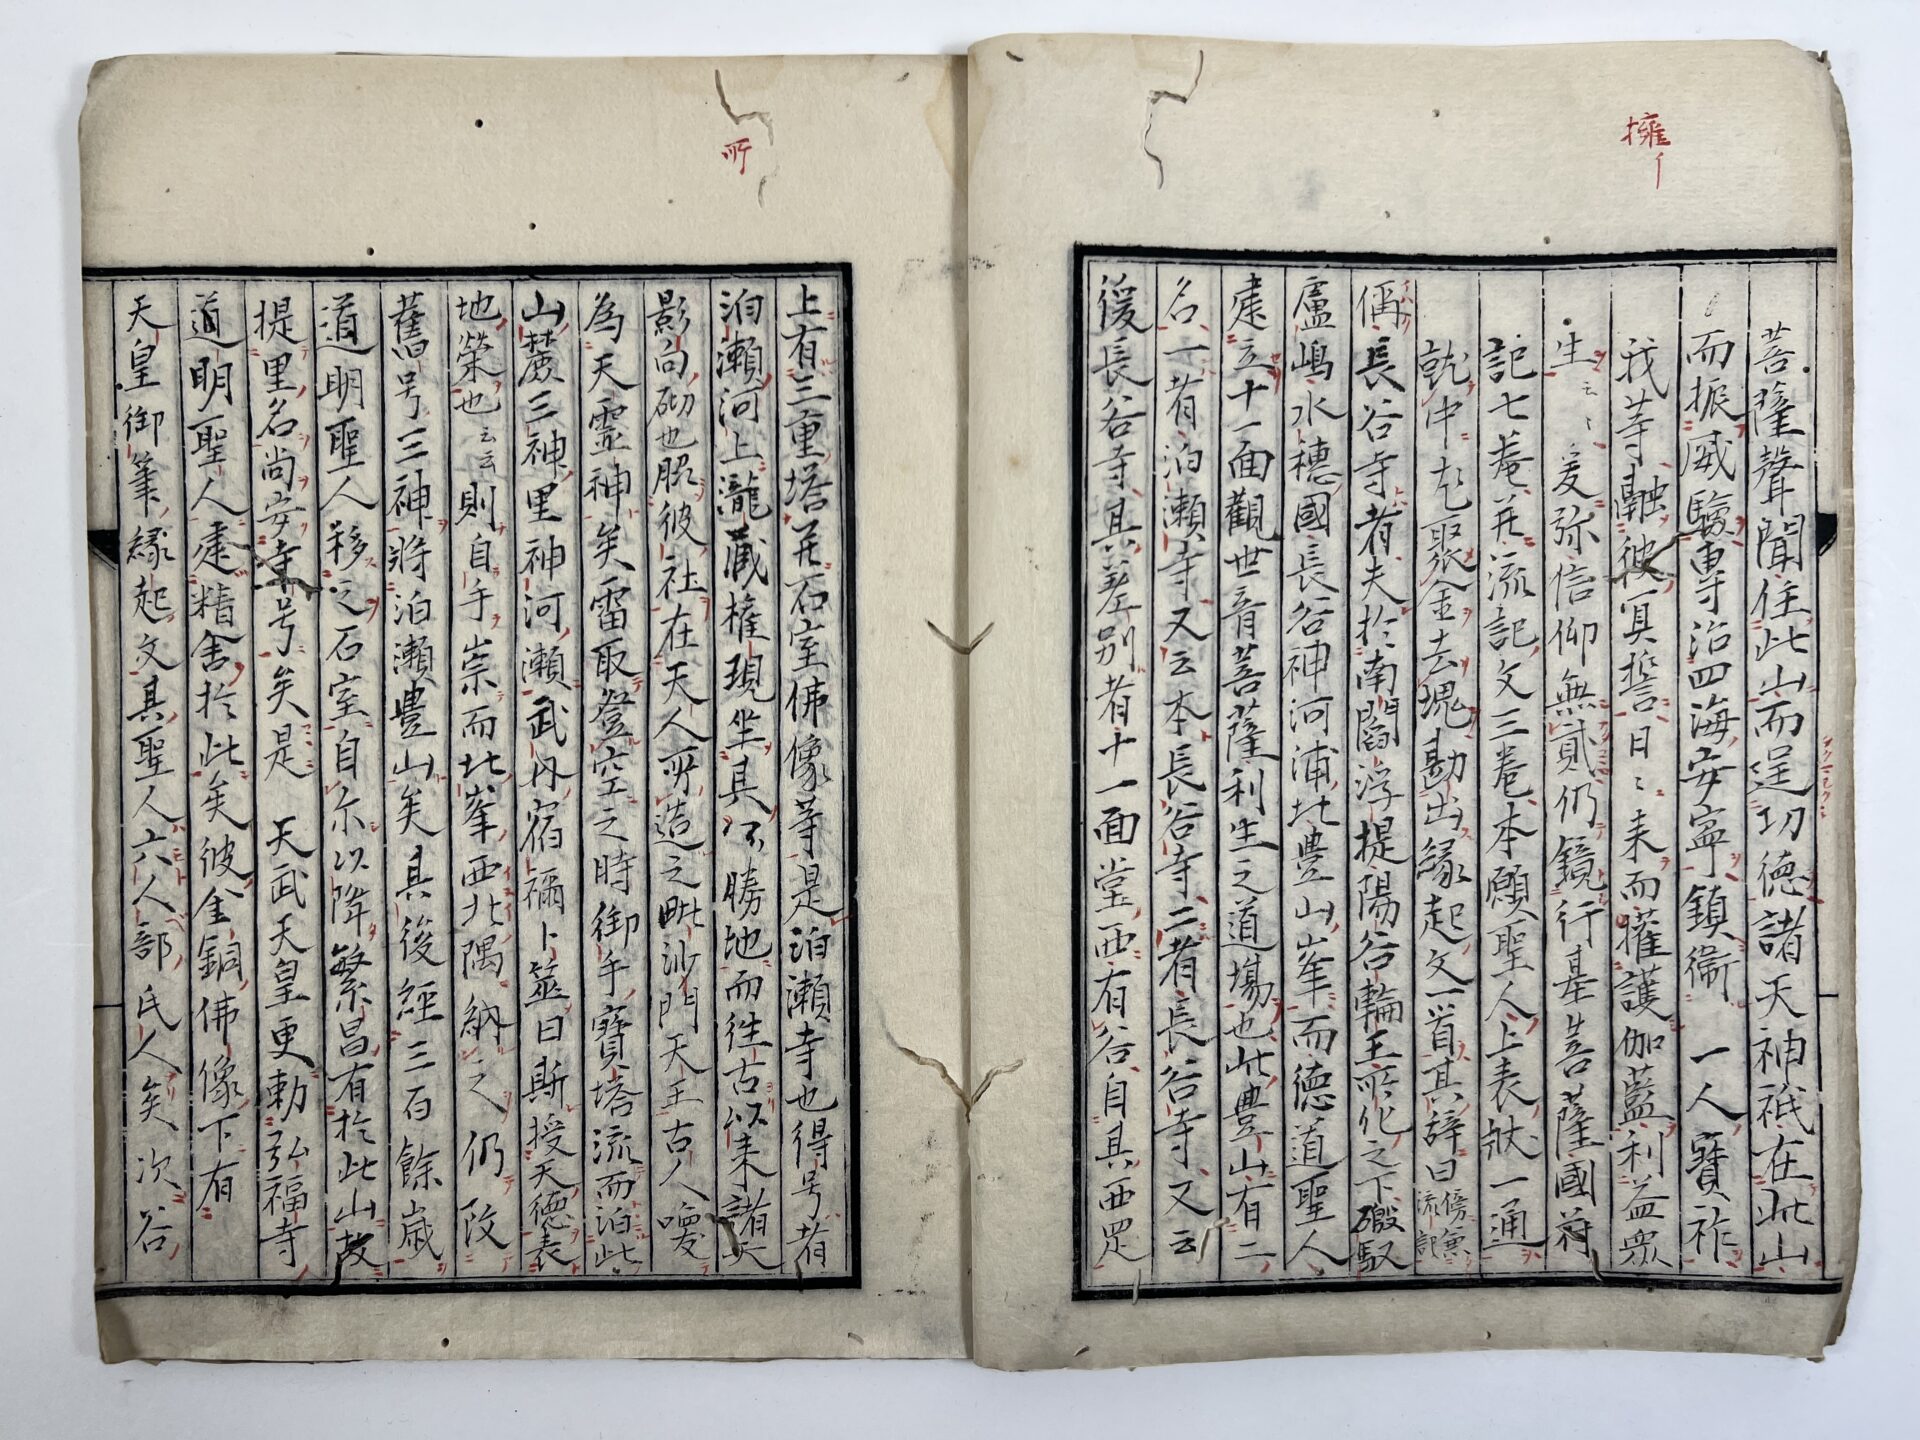 擁イ
菩薩聲聞住此山而呈功德諸天神祇在此山
而振威驗専治四海安寧鎮衛一人寶祚
我等融彼冥誓日〻夫而擁護伽藍利益衆
生云〻爰弥信仰無貳仍鏡行基菩薩國符
記七巻并流記文三巻本願聖人上表状一通
就中尤聚金去塊勘出縁起文一首其辞曰傍無流記
偁長谷寺者夫於南閻浮提陽谷輪王所化之下磤馭
盧嶋水穂國長谷神河浦北豊山峯而徳道聖人
建立十一面觀世音菩薩利生之道場也此豊山有二
名一者泊瀬寺又云本長谷寺二者長谷寺又云
後長谷寺其差別者十一面堂西有谷自其西罡
所
上有三重塔并石室佛像等是泊瀬寺也得号者
泊瀬河上瀧蔵権現坐其以勝地而往古以来諸天
影向砌也昭彼社在天人所造之毗沙門天王古人喚
為天霊神矣雷取登空之時御手寶塔流而泊此
山麓三神里神河瀬武内宿祢卜筮曰斯授天德表
地榮也云云則自手崇而北峯西北隅納之仍改
舊号三神將泊瀬豊山矣其後經三百餘歳
道明聖人移之石室自尓以降繁昌有於此山故
提里名尚安寺号矣是天武天皇更勅弘福寺
道明聖人建精舎於此矣彼金銅佛像下有
天皇御筆縁起文其聖人六人部氏人矣次谷